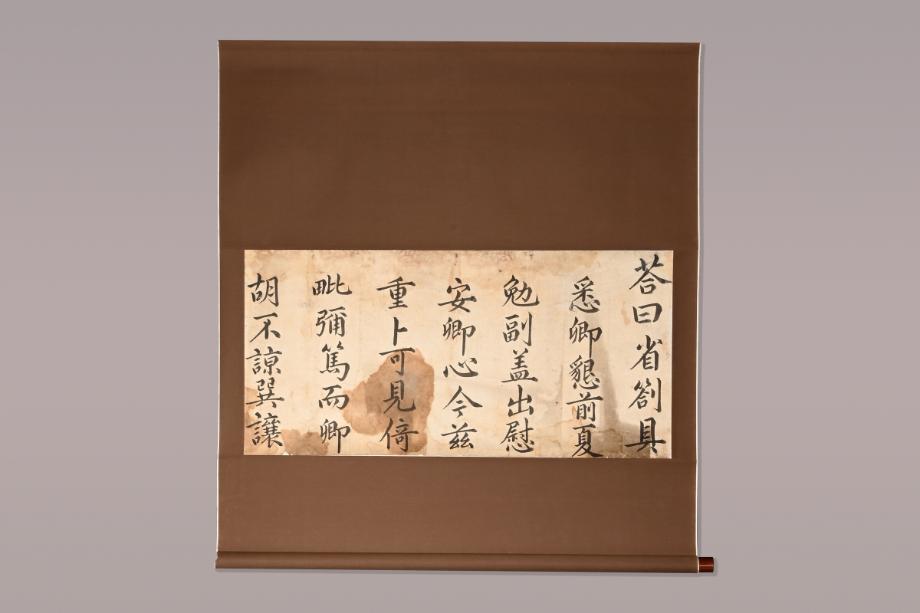 荅曰省劄具
悉卿懇前夏
勉副盖出慰
安卿心今兹
重卜可見倚
毗彌篤而卿
胡不諒巽讓